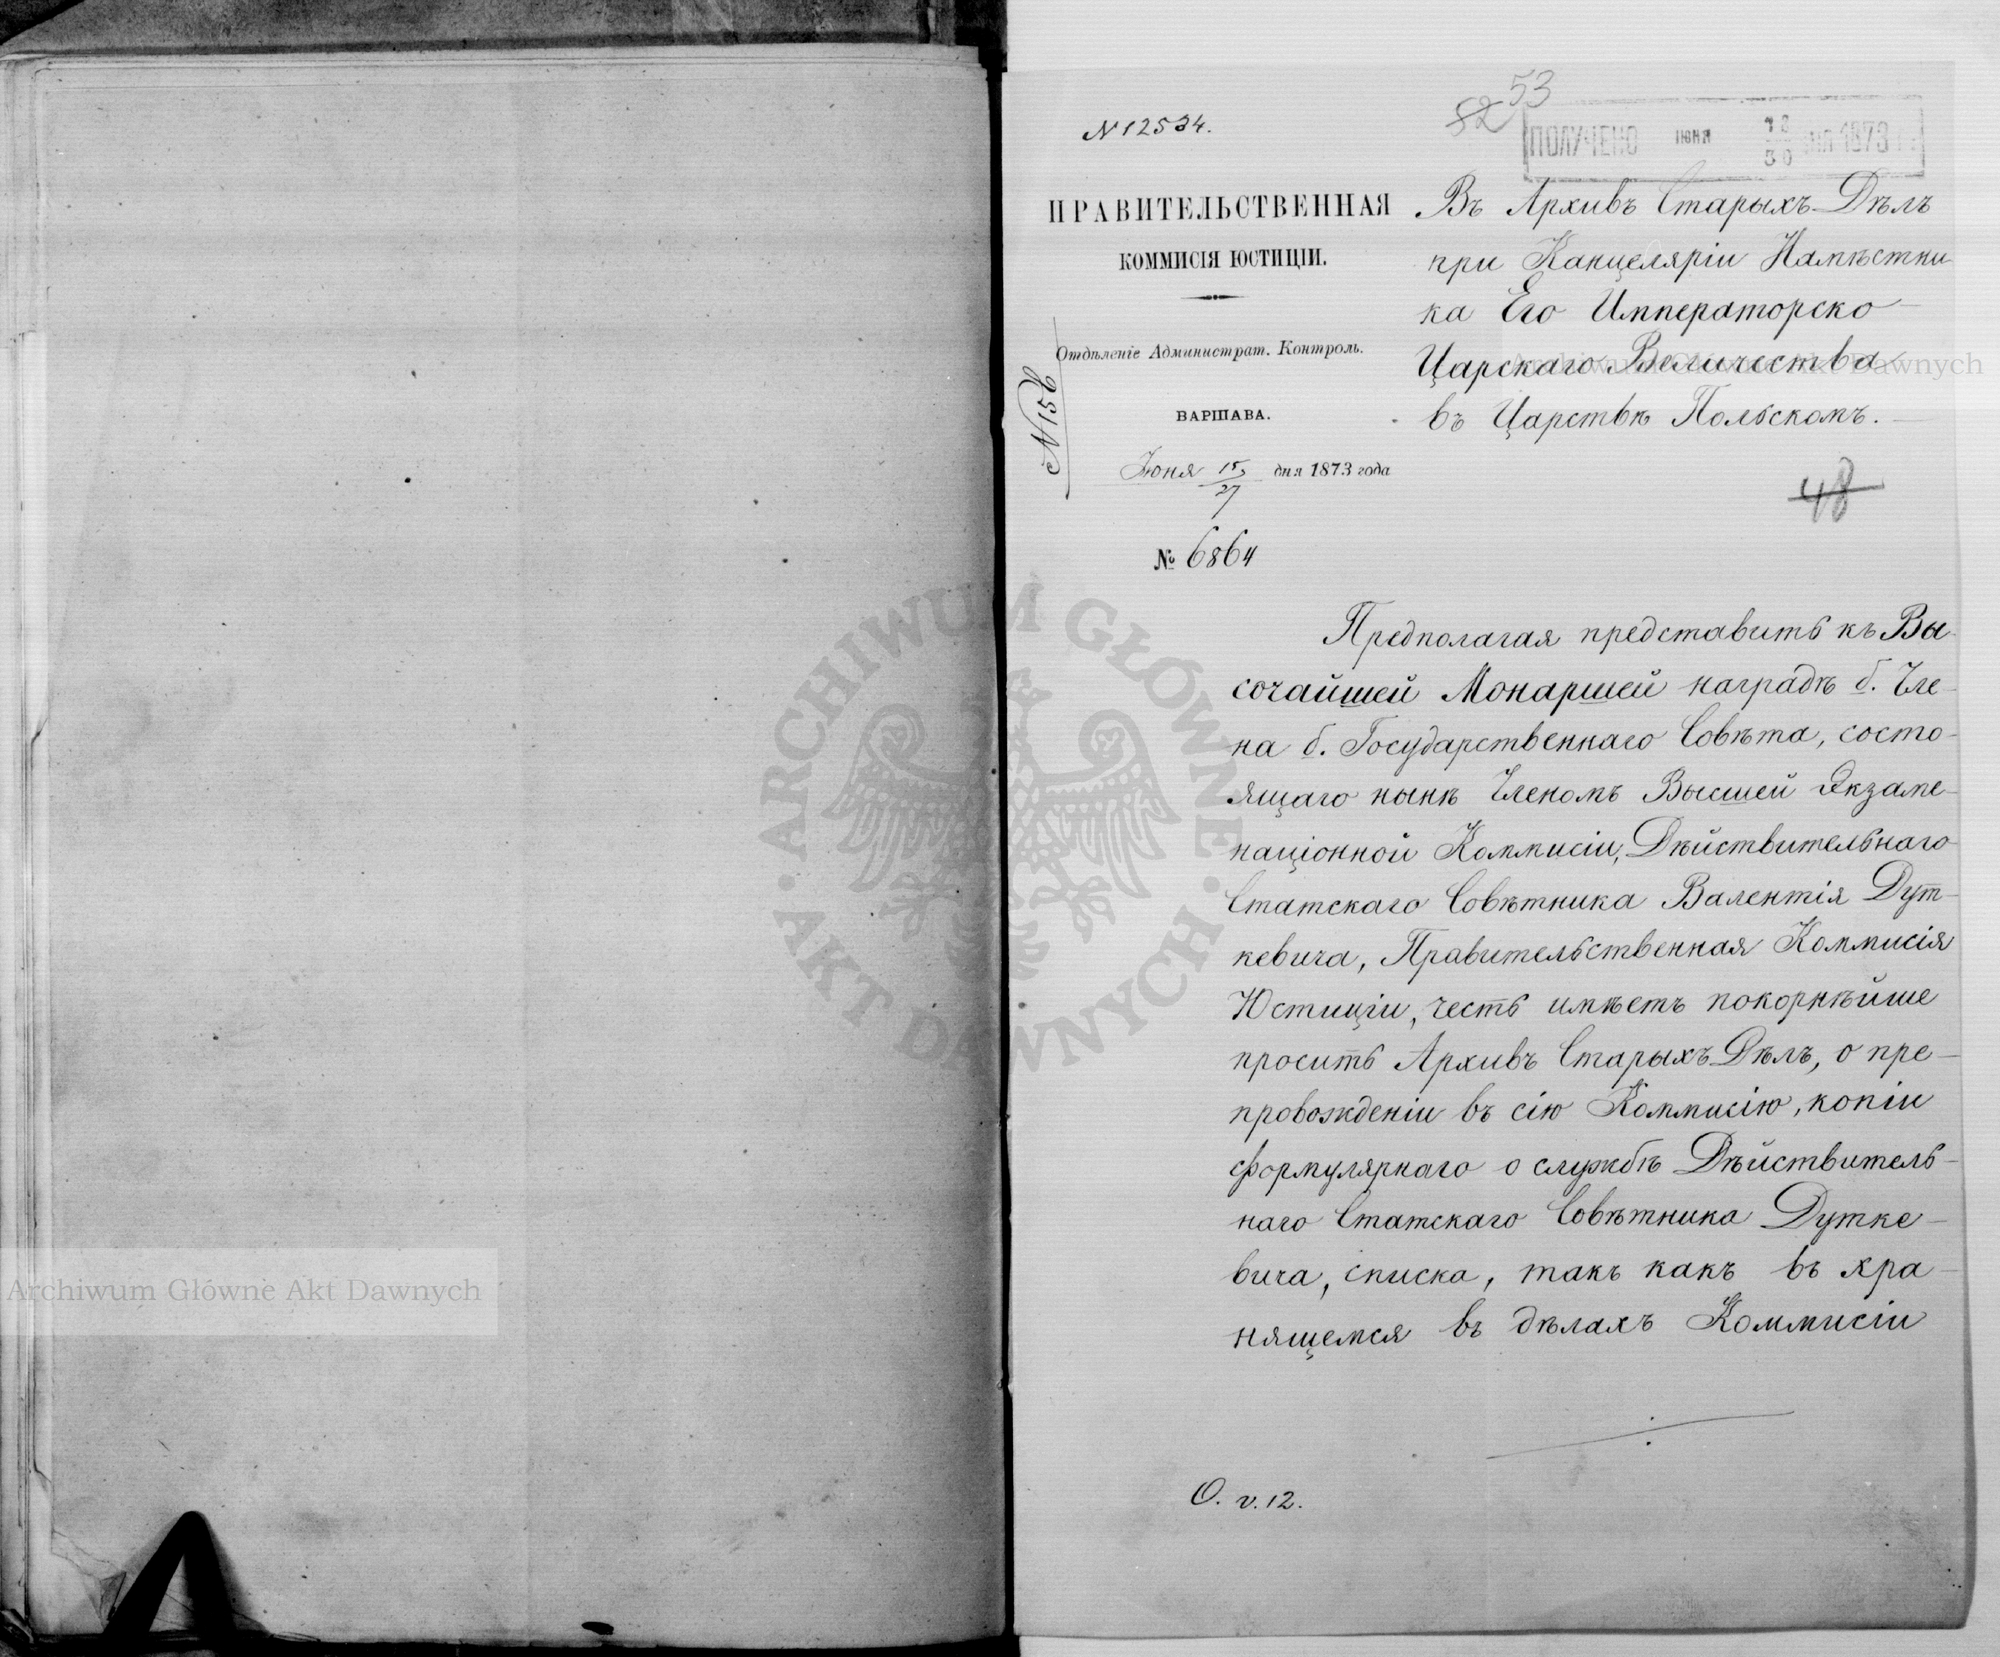 53
82
N 12534.
ПОЛУЧЕНО ІЮНЯ 18/30 1873
ПРАВИТЕЛЬСТВЕННАЯ
КОММИСІЯ ЮСТИЦІИ.
Отдѣленіе Администрат. Контроль.
N 156
ВАРШАВА.
Іюня 15/27 дня 1873 года
№ 6864
Въ Архивъ Старыхъ Дѣлъ
при Канцеляріи Намѣстни
ка Его Императорско
Царскаго Величества
въ Царствѣ Польскомъ.
48
Предполагая представить къ Вы-
сочайшей Монаршей наградѣ б. Чле-
на б. Государственнаго Совѣта, состо-
ящаго нынѣ Членомъ Высшей Экзаме-
націонной Коммисіи, Дѣйствительнаго
Статскаго Совѣтника Валентія Дут-
кевича, Правительственная Коммисія
Юстиціи, честь имѣетъ покорнѣйше
просить Архивъ Старыхъ Дѣлъ, о пре-
провожденіи въ сію Коммисію, копіи
формулярнаго о службѣ Дѣйствитель-
наго Статскаго Совѣтника Дутке-
вича, списка, такъ какъ въ хра-
нящемся въ дѣлахъ Коммисіи
О. v. 12.
Archiwum Główne Akt Dawnych
Archiwum Główne Akt Dawnych
ARCHIWUM GŁÓWNE · AKT DAWNYCH ·